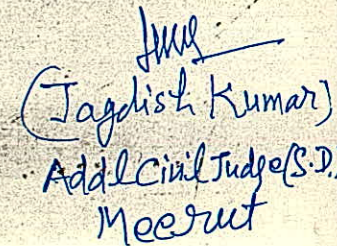 (Jagdish Kumar)
Addl Civil Judge (S.D.)
Meerut